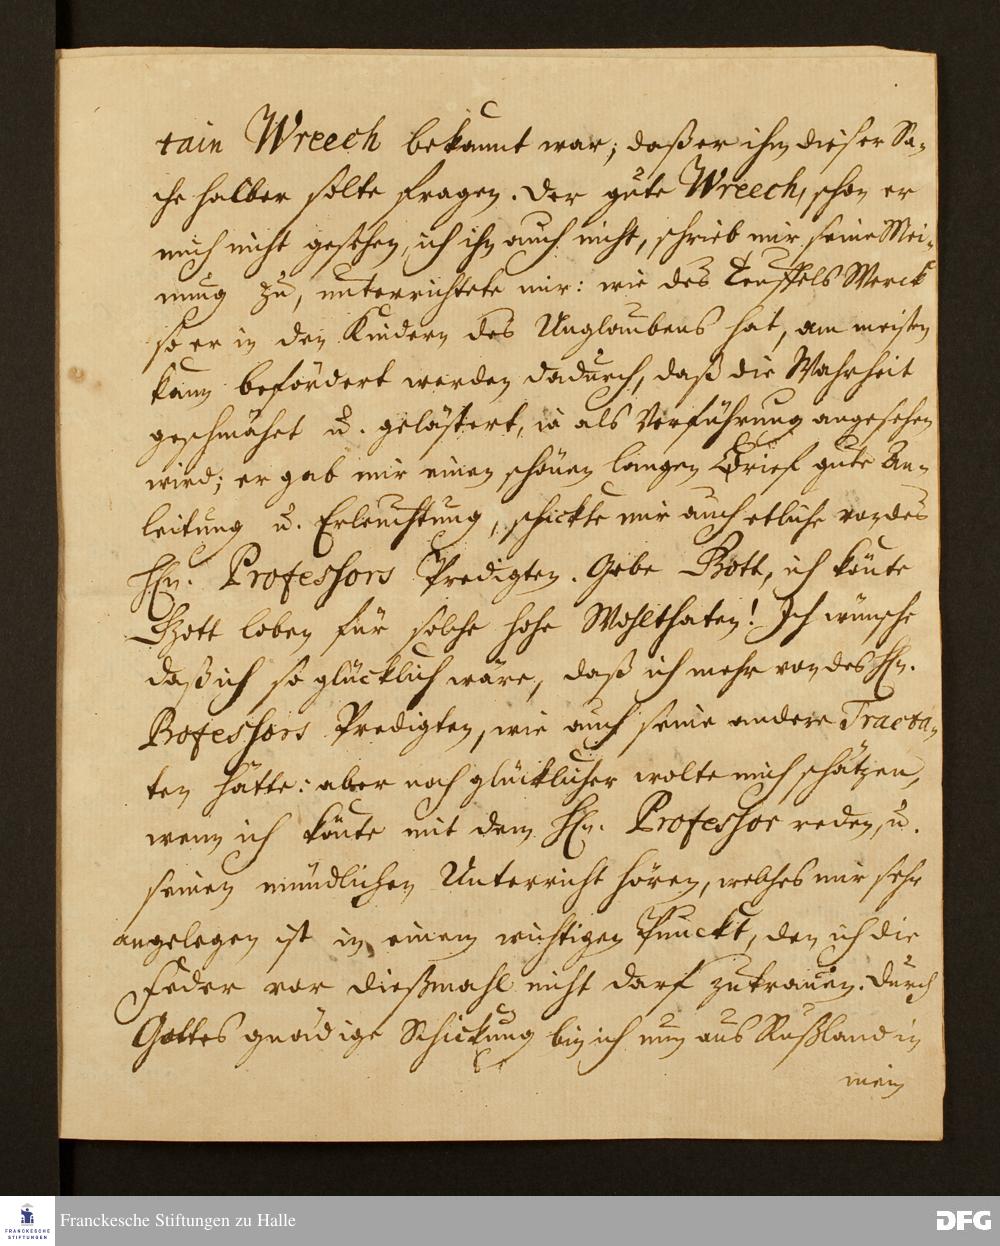 tain Wreech bekannt war; daß er ihn dieser Sa-
che halber solte fragen. Der gute Wreech, schon er
mich nicht gesehen, ich ihn auch nicht, schrieb mir seine Mei-
nung zu, unterrichtete mir: wie des Teuffels Werck
so er in den Kindern des Unglaubens hat, am meisten
kann befördert werden dadurch, daß die Wahrheit
geschmähet u. gelästert, ja als Verführung angesehen
wird; er gab mir einen schönen langen Brief gute An-
leitung u. Erleuchtung, schickte mir auch etliche von des
Hn. Professors Predigten. Gebe Gott, ich könte
Gott loben für solche hohe Wohlthaten! Ich wünsche
daß ich so glücklich wäre, daß ich mehr von des Hn.
Professors Predigten, wie auch seine andere Tracta-
ten hätte: aber noch glücklicher wolte mich schätzen,
wenn ich könte mit dem Hn. Professor reden, u.
seinen mündlichen Unterricht hören, welches mir sehr
angelegen ist in einem wichtigen Punckt, den ich die
Feder vor dießmahl nicht darf zutrauen. Durch
Gottes gnädige Schickung bin ich nun aus Rußland in
mein
FRANCKESCHE
STIFTUNGEN
Franckesche Stiftungen zu Halle
DFG